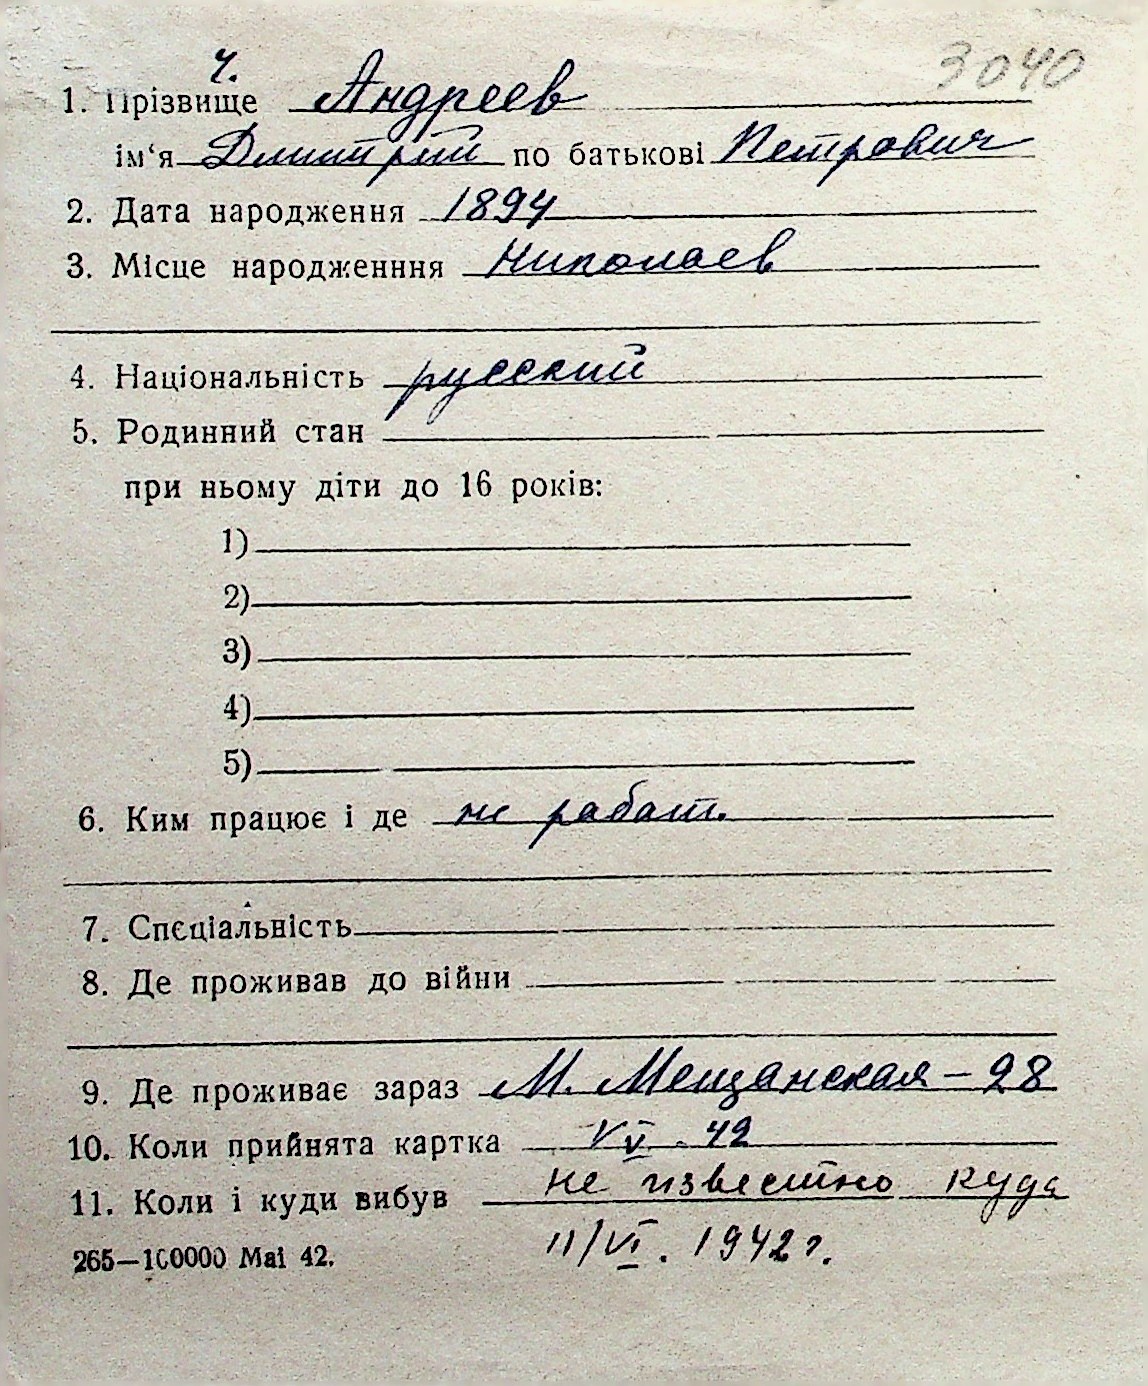 ч. 3040
1. Прізвище Андреев
ім'я Дмитрий по батькові Петрович
2. Дата народження 1894
3. Місце народженння Николаев
4. Національність русский
5. Родинний стан
при ньому діти до 16 років:
1)
2)
3)
4)
5)
6. Ким працює і де не работ.
7. Спєціальність
8. Де проживав до війни
9. Де проживає зараз М. Мещанская – 28
10. Коли прийнята картка V. 42
11. Коли і куди вибув не известно куда
265—100000 Mai 42. 11/VI. 1942 г.